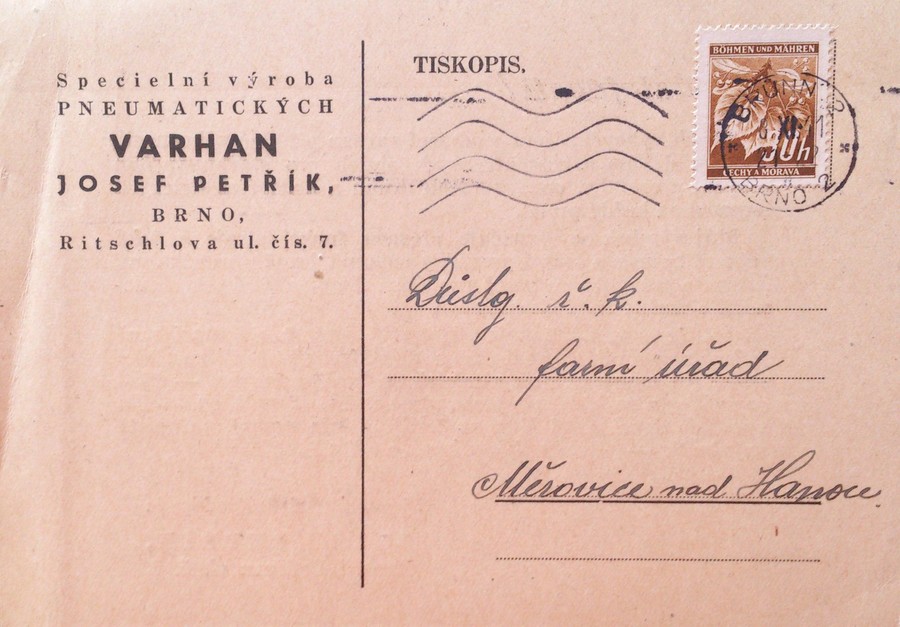 Specielní výroba
PNEUMATICKÝCH
VARHAN
JOSEF PETŘÍK,
BRNO,
Ritschlova ul. čís. 7.
TISKOPIS.
BÖHMEN UND MÄHREN
ČECHY A MORAVA
BRÜNN 2
XI
BRNO 2
Důstg. ř. k.
farní úřad
Měrovice nad Hanou